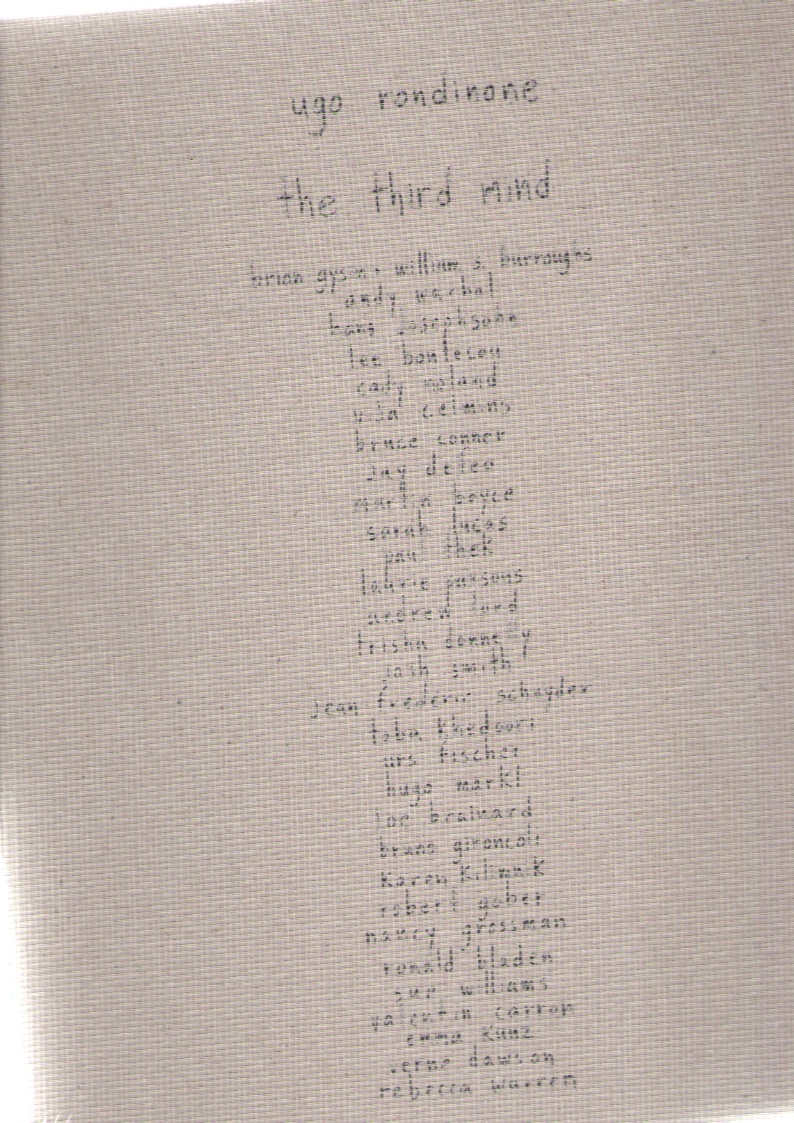 ugo rondinone
the third mind
brion gysin + william s. burroughs
andy warhol
hans josephsohn
lee bontecou
cady noland
vija celmins
bruce conner
jay defeo
martin boyce
sarah lucas
paul thek
laurie parsons
andrew lord
trisha donnelly
josh smith
jean frederic schnyder
toba khedoori
urs fischer
hugo markl
joe brainard
bruno gironcoli
karen kilimnik
robert gober
nancy grossman
ronald bladen
sue williams
valentin carron
emma kunz
verne dawson
rebecca warren